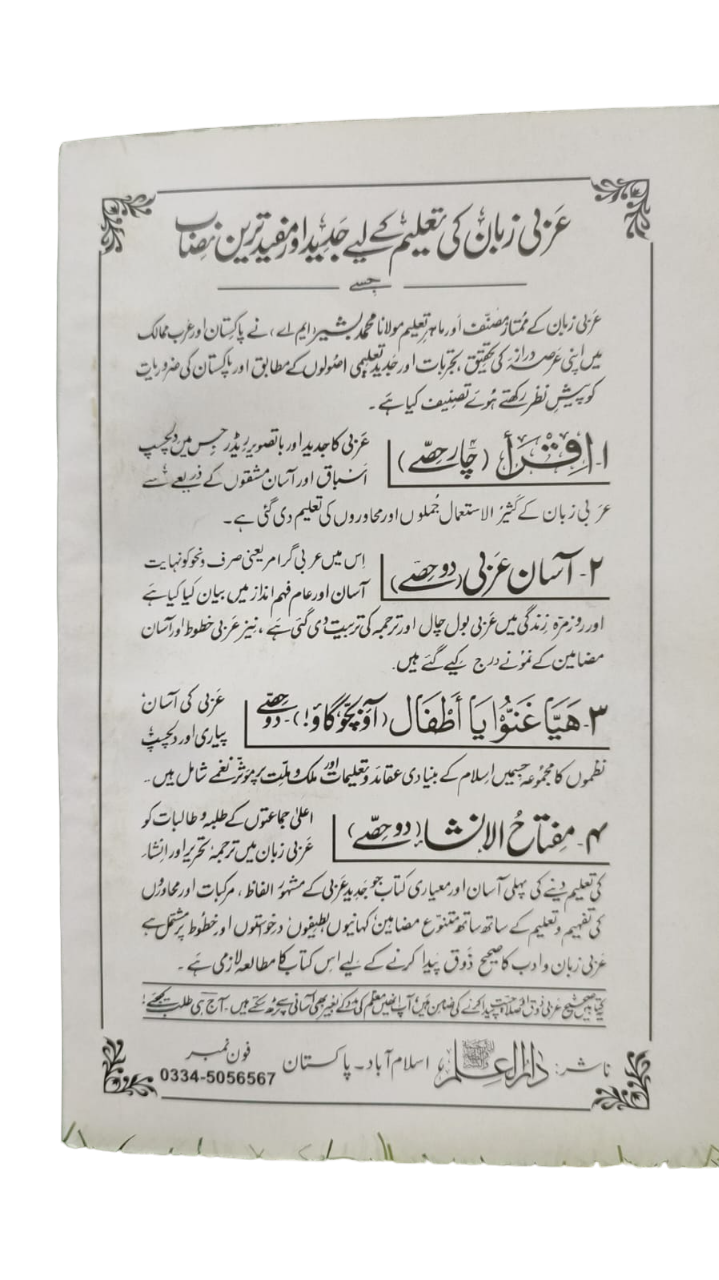 عربی زبان کی تعلیم کے لیے جدید اور مفید ترین نصاب
جسے
عربی زبان کے ممتاز مصنف اور ماہر تعلیم مولانا محمد بشیر (ایم اے) نے پاکستان اور عرب ممالک
میں اپنی عرصہ دراز کی تحقیق، تجربات اور جدید تعلیمی اصولوں کے مطابق اور پاکستان کی ضروریات
کو پیشِ نظر رکھتے ہوئے تصنیف کیا ہے۔
۱- اِقْرَأْ (چار حصّے) عربی کا جدید اور باتصویر ریڈر جس میں دلچسپ
اسباق اور آسان مشقوں کے ذریعے سے
عربی زبان کے کثیر الاستعمال جُملوں اور محاوروں کی تعلیم دی گئی ہے۔
۲- آسان عربی (دو حصّے) اِس میں عربی گرامر یعنی صرف و نحو کو نہایت
آسان اور عام فہم انداز میں بیان کیا گیا ہے
اور روزمرہ زندگی میں عربی بول چال اور ترجمہ کی تربیت دی گئی ہے، نیز عربی خطوط اور آسان
مضامین کے نمونے درج کیے گئے ہیں۔
۳- هَيَّا غَنُّوْا يَا أَطْفَال (آؤ بچو گاؤ!) - دو حصّے عربی کی آسان
پیاری اور دلچسپ
نظموں کا مجموعہ جسمیں اسلام کے بنیادی عقائد و تعلیمات اور ملک و ملت پر مؤثر نغمے شامل ہیں۔
۴- مفتاحُ الانشاء (دو حصّے) اعلیٰ جماعتوں کے طلبہ و طالبات کو
عربی زبان میں ترجمہ تحریر اور اِنشاء
کی تعلیم دینے کی پہلی آسان اور معیاری کتاب جو جدید عربی کے مشہور الفاظ، مرکبات اور محاوروں
کی تفہیم و تعلیم کے ساتھ ساتھ متنوع مضامین کہانیوں لطیفوں درخواستوں اور خطوط پر مشتمل ہے
عربی زبان و ادب کا صحیح ذوق پیدا کرنے کے لیے اس کتاب کا مطالعہ لازمی ہے۔
کتابیں صحیح عربی ذوق پیدا کرنے کی ضامن ہیں آپ انھیں معلم کی مدد کے بغیر بھی آسانی سے پڑھ سکتے ہیں۔ آج ہی طلب کیجئے!
ناشر: دارالعلم اسلام آباد - پاکستان فون نمبر
0334-5056567